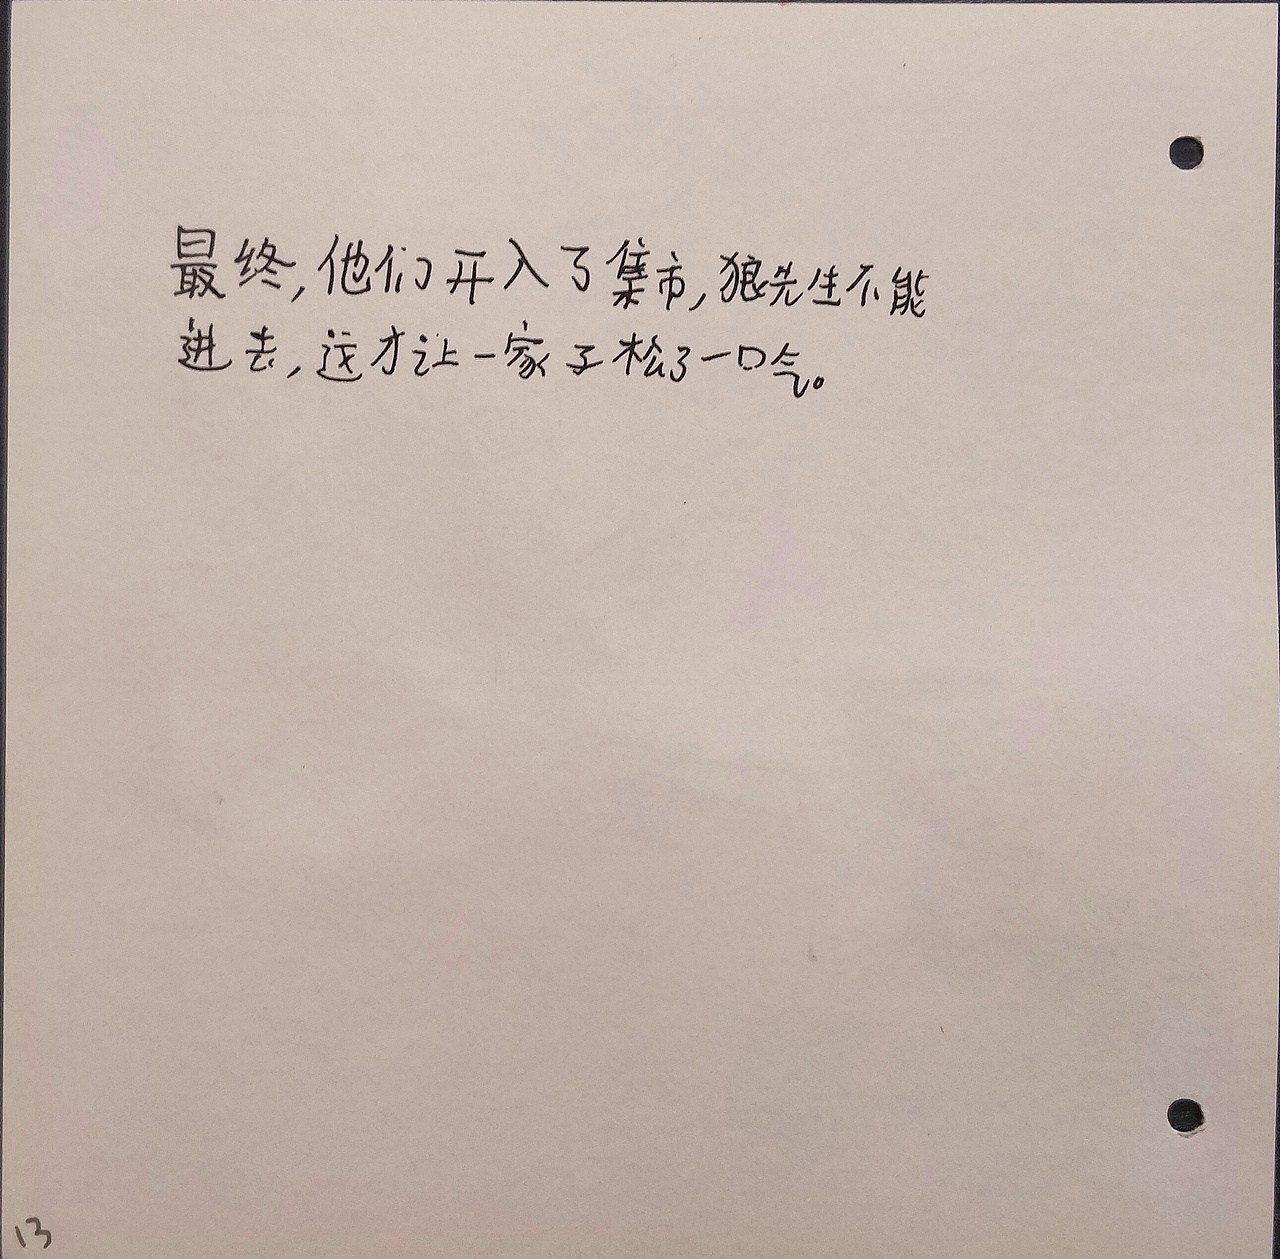 最终,他们开入了集市,狼先生不能
进去,这才让一家子松了一口气。
13